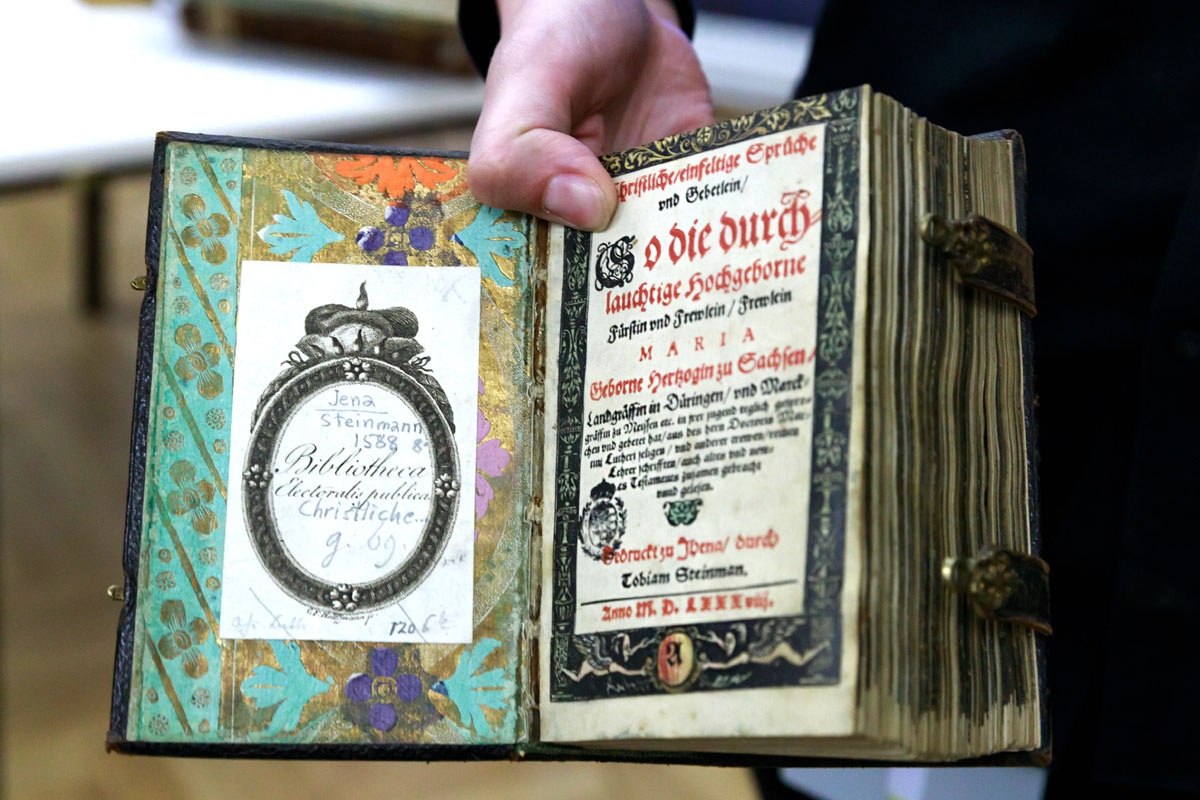 Jena
Steinmann
1588 8°
Bibliotheca
Electoralis publica.
Christliche...
g. 09.
1206
Christliche/einfeltige Sprüche
vnd Gebetlein/
So die durch-
lauchtige Hochgeborne
Fürstin vnd Frewlein/ Frewlein
MARIA
Geborne Hertzogin zu Sachsen/
Landgräffin in Düringen/ vnd Marck-
gräffin zu Meissen etc. in jrer jugend teglich gespro-
chen vnd gebetet hat/ aus des hern Doctoris Mar-
tini Lutheri seligen/ vnd anderer trewen/ reinen
Lehrer schrifften/ auch altes vnd new-
es Testaments zusamen gebracht
vnnd gelesen.
Gedruckt zu Jhena/ durch
Tobiam Steinman.
Anno M. D. LXXXviij.
A